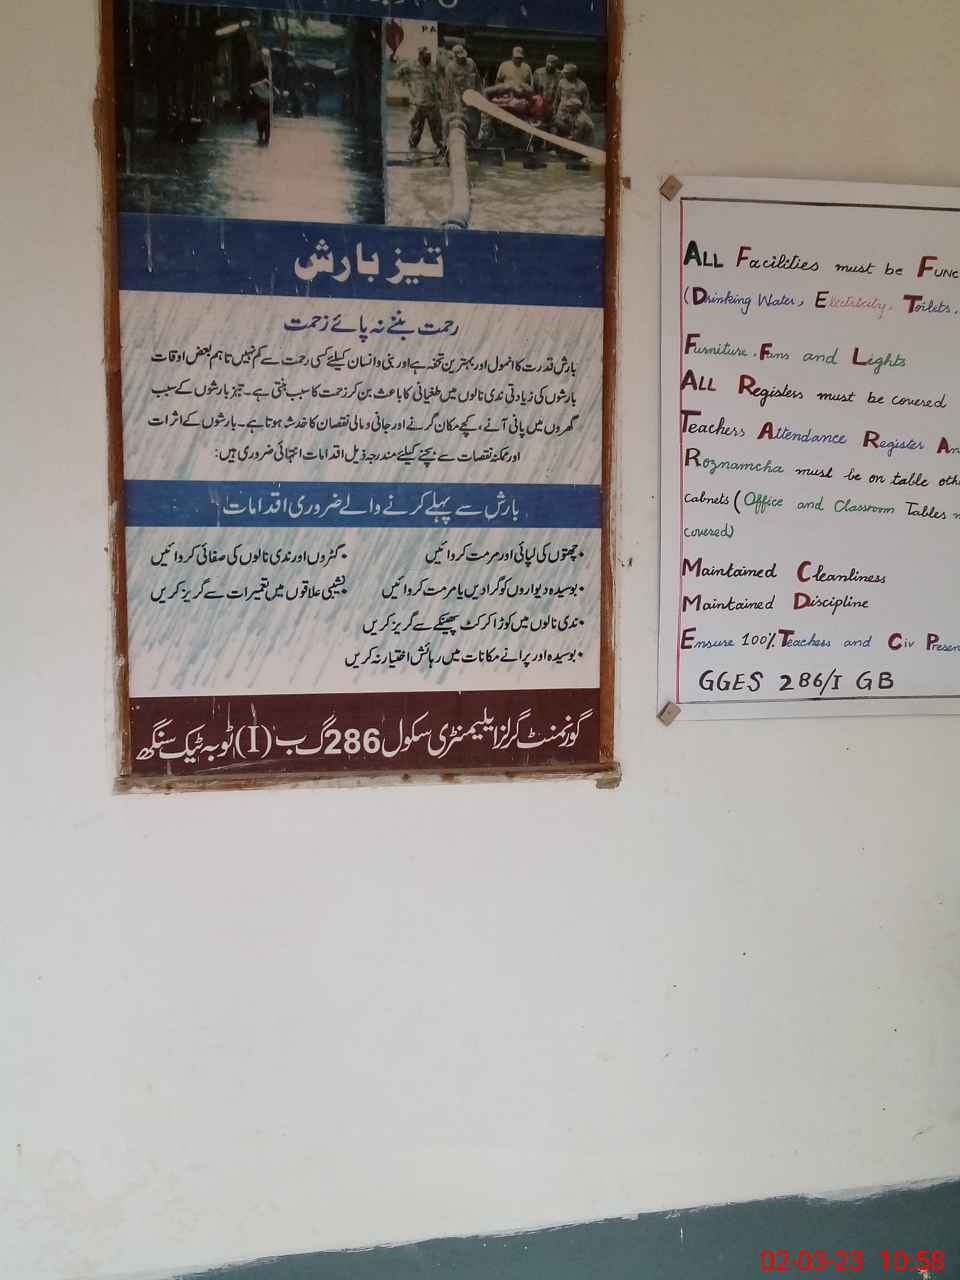 PA
تیز بارش
رحمت بننے نہ پائے زحمت
بارش قدرت کا انمول اور بہترین تحفہ ہے اور بنی و انسان کیلئے کسی رحمت سے کم نہیں تاہم بعض اوقات
بارشوں کی زیادتی ندی نالوں میں طغیانی کا باعث بن کر زحمت کا سبب بنتی ہے۔ تیز بارشوں کے سبب
گھروں میں پانی آنے، کچے مکان گرنے اور جانی و مالی نقصان کا خدشہ ہوتا ہے۔ بارشوں کے اثرات
اور ممکنہ نقصات سے بچنے کیلئے مندرجہ ذیل اقدامات انتہائی ضروری ہیں:
بارش سے پہلے کرنے والے ضروری اقدامات
• چھتوں کی لپائی اور مرمت کروائیں
• گٹروں اور ندی نالوں کی صفائی کروائیں
• بوسیدہ دیواروں کو گرا دیں یا مرمت کروائیں
• نشیبی علاقوں میں تعمیرات سے گریز کریں
• ندی نالوں میں کوڑا کرکٹ پھینکنے سے گریز کریں
• بوسیدہ اور پرانے مکانات میں رہائش اختیار نہ کریں
گورنمنٹ گرلز ایلیمنٹری سکول 286 گ ب (I) ٹوبہ ٹیک سنگھ
ALL Facilities must be Func
(Drinking Water, Electricity, Toilets,
Furniture, Fans and Lights
ALL Registers must be covered
Teachers Attendance Register An
Roznamcha must be on table oth
cabnets (Office and Classroom Tables
covered)
Maintained Cleanliness
Maintained Discipline
Ensure 100% Teachers and Civ Presen
GGES 286/I GB
02-03-23 10:58